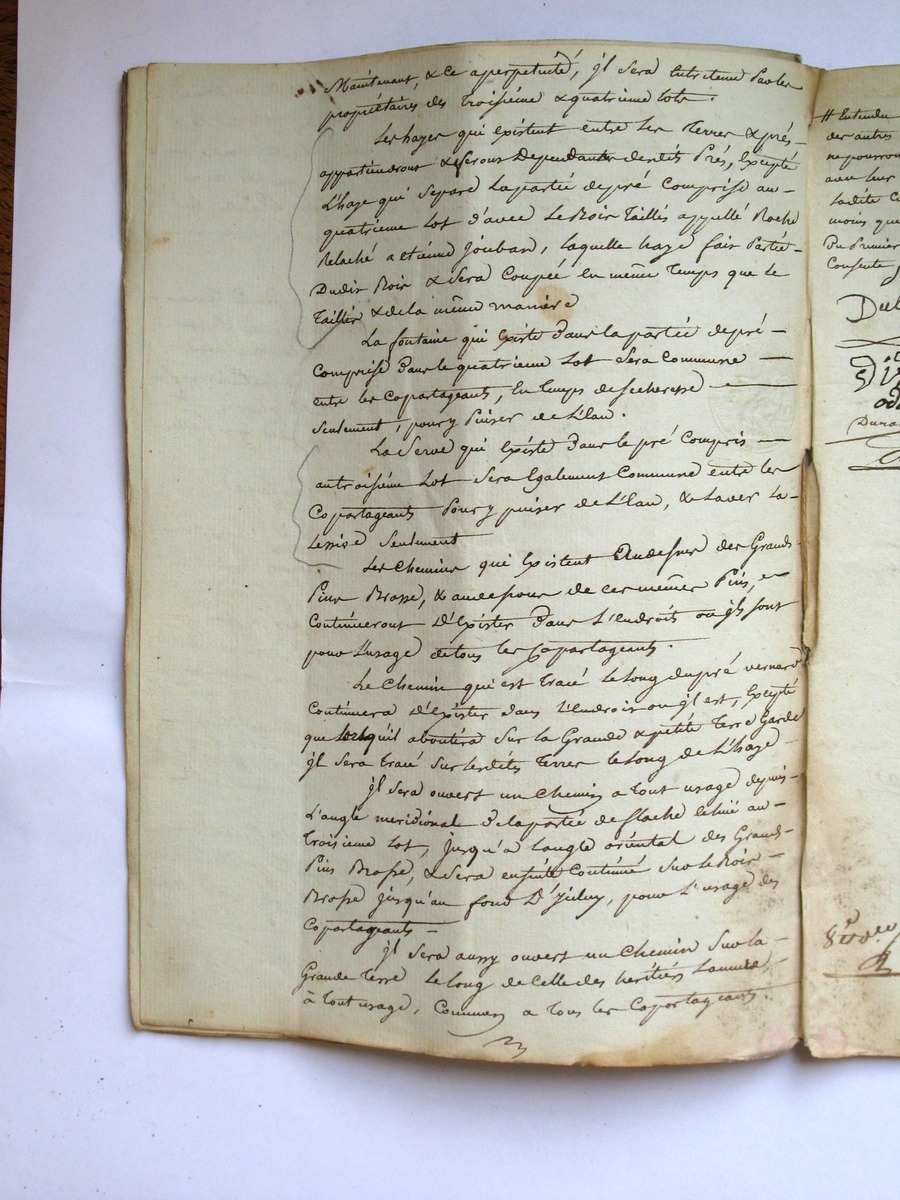 Maintenant, & ce a perpetuité, jl sera Entretenu Par les
propriétaires des troisiéme & quatrieme lots.
Les hayes qui éxistent entre Les Terres & prés
appartiendront & seront Dependantes desdits Prés, Excepté
L'haye qui Separe La partie de pré Comprise au
quatrieme Lot d'avec Le Bois Taillés appellé Roche
Relaché a etienne Jouban, laquelle haye fair Partie
Dudit Bois & Sera Coupée En même Temps que le
Taillis & de la même maniere
La fontaine qui Existe Dans la partie de pré
Comprise Dans le quatrieme Lot Sera Commune
entre les Copartageants, En Temps de secheresse
Seulement, pour y Puiser de L'Eau.
La Serve qui Existe Dans le pré Compris
au troisiéme Lot Sera Egalement Commune entre les
Copartageants Pour y puiser de L'Eau, & Laver La
Lessive Seulement
Les Chemins qui Existent Au dessus des Grands
Pins Brosse, & au dessous de ces mêmes Pins,
Continueront D'Exister Dans L'Endroit ou jls sont
pour L'usage de tous les Copartageants.
Le Chemin qui est tracé Le long du pré vernard
Continuera D'Exister dans L'Endroit ou jl est, Excepté
que lorsqu'il aboutira Sur la Grande & petite Terre Garde
jl Sera tracé Sur lesdites Terres le long de L'haye
jl Sera ouvert un Chemin a tout usage depuis
L'angle meridional De la partie de flache Echue au
troisieme Lot, jusqu'a Langle oriental des Grands
Pins Brosse, & Sera ensuite Continué Sur le Bois
Brosse jusqu'au fond D', pour L'usage des
Copartageants
jl Sera aussy ouvert un Chemin Sur la
Grande Terre Le long de Celle des héritiers
à tout usage, Commun a tous les Copartageants.
# Entendu
des autres
ne pourront
avec leur
ladite
moins que
Du Premier
Consente
Dul
Dura